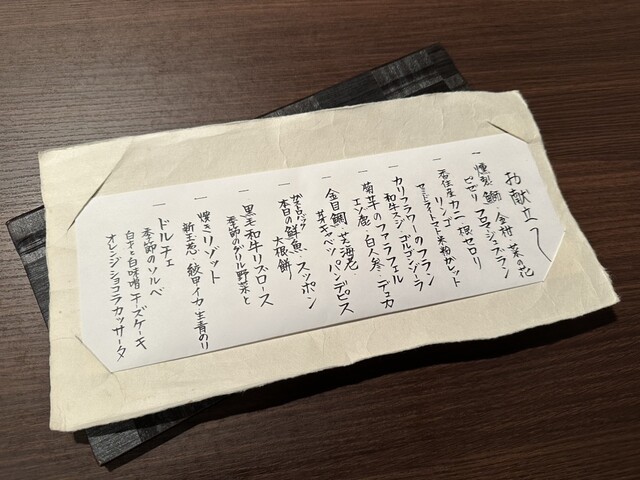 お献立
一
燻製鰤・金柑・菜の花
ピゼリ フロマージュブラン
一
香住産カニ・根セロリ
リンゴ
セミドライトマト 米粉ガレット
一
カリフラワーのフラン
和牛スジ・ゴルゴンゾーラ
一
菊芋のファラフェル
エゾ鹿・白人参・デュカ
一
金目鯛・芝海老
芽キャベツ パンデピス
一
本日の鮮魚・スッポン
大根餅
一
黒毛和牛リブロース
季節のグリル野菜と
一
焼きリゾット
新玉葱・紋甲イカ 生青のり
一
ドルチェ
季節のソルベ
白干と白味噌チーズケーキ
オレンジショコラカッサータ